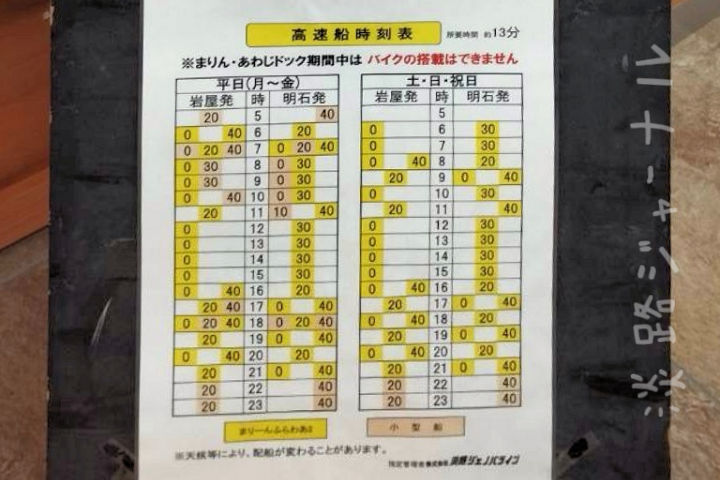 高速船時刻表 所要時間 約13分
※まりん・あわじドック期間中は バイクの搭載はできません
平日(月～金) 土・日・祝日
岩屋発 時 明石発 岩屋発 時 明石発
20 5 40 5
0 40 6 20 0 6 30
0 20 40 7 0 20 40 0 7 30
0 30 8 0 30 0 40 8 20
0 30 9 0 30 20 9 0 40
0 40 10 0 30 0 10 30
20 11 10 40 20 11 40
0 12 30 0 12 30
0 13 30 0 13 30
0 14 30 0 14 30
0 15 30 0 15 30
0 40 16 20 0 40 16 20
20 40 17 0 40 20 17 0 40
0 20 40 18 0 20 40 0 40 18 20
20 40 19 0 40 20 19 0 40
0 40 20 20 0 40 20 20
20 21 0 40 20 21 0 40
20 22 40 20 22 40
20 23 40 20 23 40
まりーんふらわあ2 小型船
※天候等により、配船が変わることがあります。
指定管理者 株式会社 淡路ジェノバライン
淡路ジャーナル